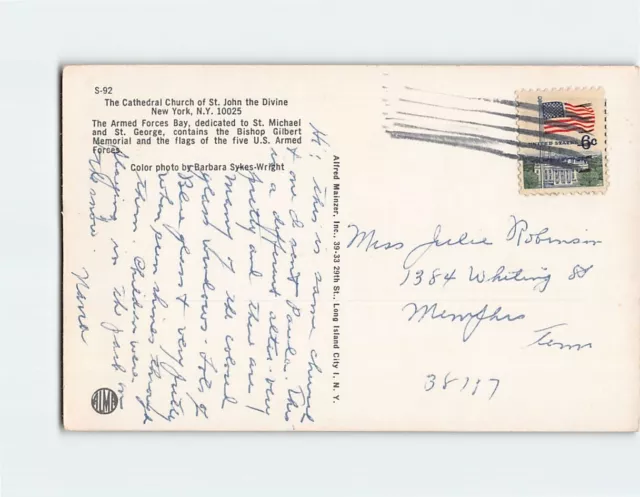 S-92
The Cathedral Church of St. John the Divine
New York, N.Y. 10025
The Armed Forces Bay, dedicated to St. Michael
and St. George, contains the Bishop Gilbert
Memorial and the flags of the five U.S. Armed
Forces.
Color photo by Barbara Sykes-Wright
Hi! this is same church
& one I sent Paula. This
is a different altar - very
pretty and there are
many of the colored
glass windows - Lots of
Blue glass & very pretty
when sun shines through
them. Children were
playing in the park on
the snow.
Nana
Alfred Mainzer, Inc., 39-33 29th St., Long Island City 1, N. Y.
UNITED STATES
6c
Miss Julie Robinson
1384 Whiting St
Memphis
Tenn
38117
ALMA